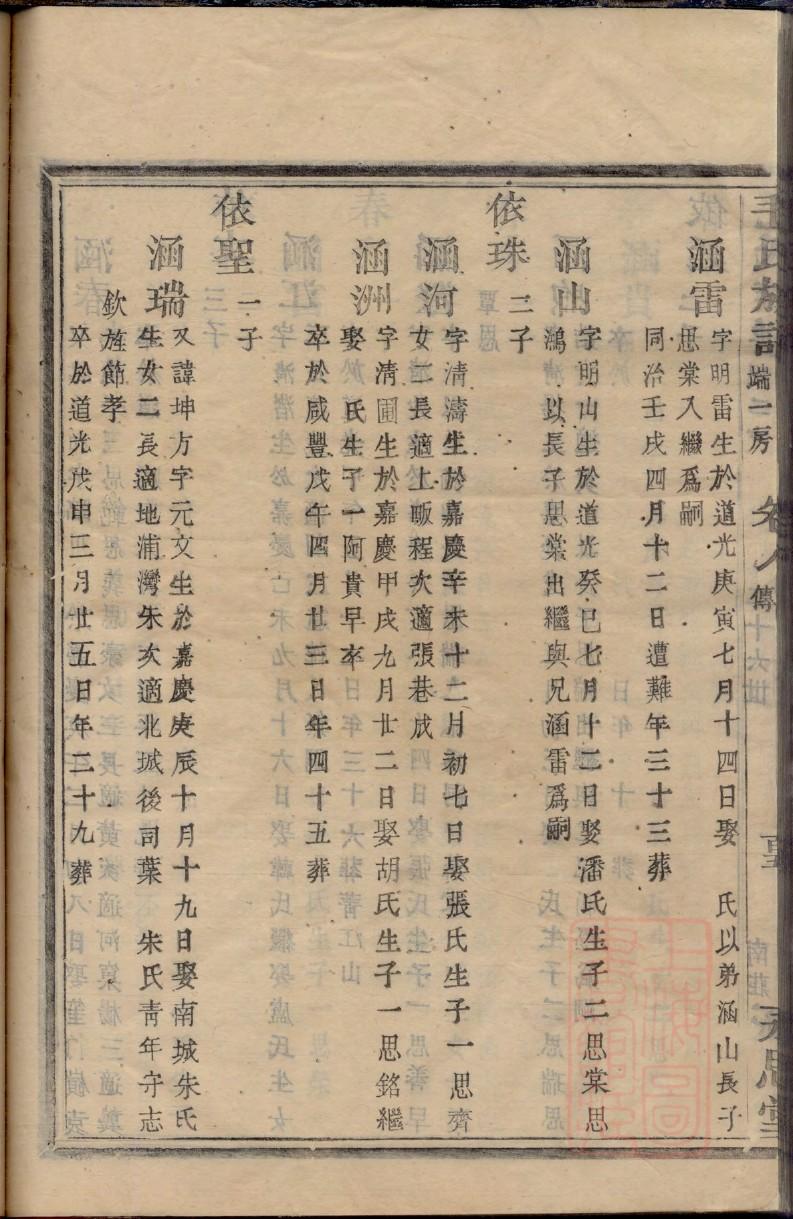 王氏族譜 端一房 傳
涵雷
字明雷生於道光庚寅七月十四日娶 氏以弟涵山長子
思棠入繼爲嗣
同治壬戌四月十二日遭難年三十三葬
涵山
字明山生於道光癸巳七月十二日娶潘氏生子二思棠思
鴻以長子思棠出繼與兄涵雷爲嗣
依珠 二子
涵河
字清濤生於嘉慶辛未十二月初七日娶張氏生子一思齊
女二長適上畈程次適張巷成
涵洲
字清圃生於嘉慶甲戌九月廿二日娶胡氏生子一思銘繼
娶 氏生子一阿貴早卒
卒於咸豐戊午四月廿三日年四十五葬
依聖 一子
涵瑞
又諱坤方字元文生於嘉慶庚辰十月十九日娶南城朱氏
生女二長適地浦灣朱次適北城後司葉 朱氏靑年守志
欽旌節孝
卒於道光戊申三月廿五日年二十九葬